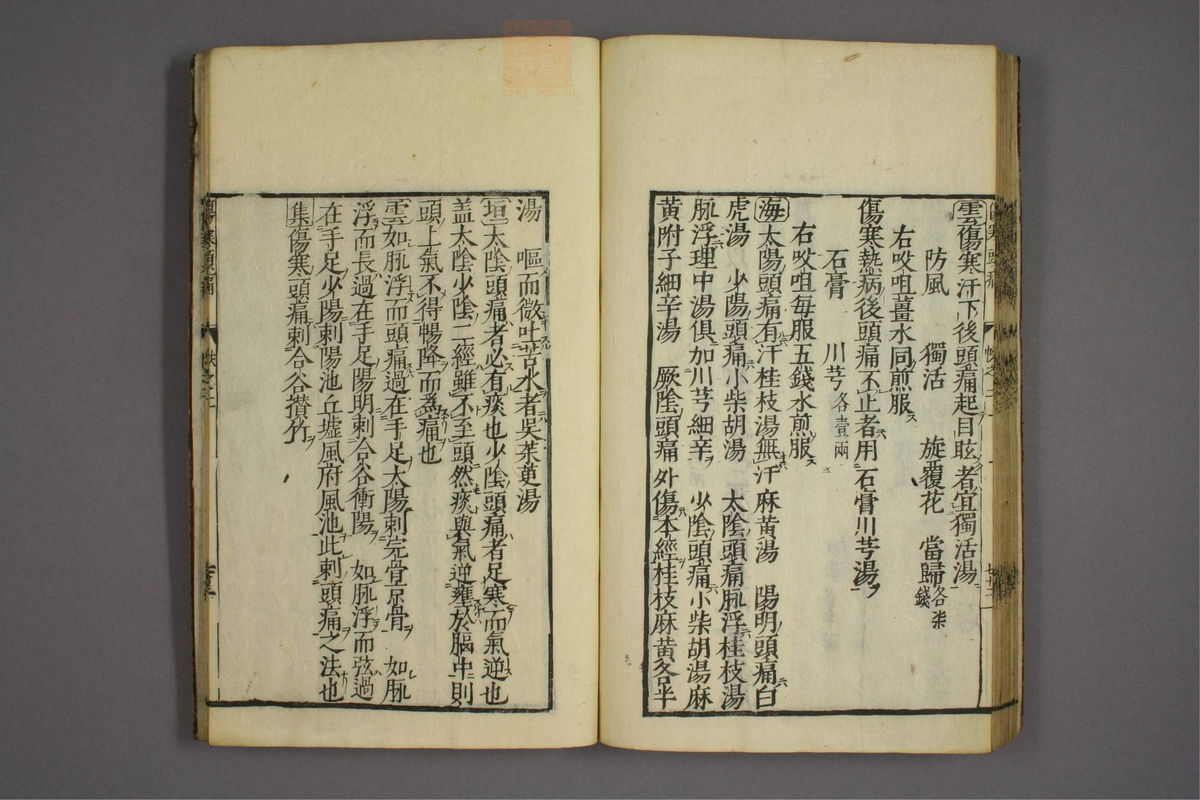 雲傷寒汗下後頭痛起目眩者宜獨活湯
防風 獨活 旋覆花 當歸各柒錢
右㕮咀薑水同煎服
傷寒熱病後頭痛不止者用石膏川芎湯
石膏 川芎各壹兩
右㕮咀每服五錢水煎服
海太陽頭痛有汗桂枝湯無汗麻黃湯 陽明頭痛白
虎湯 少陽頭痛小柴胡湯 太陰頭痛脉浮桂枝湯
脉浮理中湯俱加川芎細辛 少陰頭痛小柴胡湯麻
黃附子細辛湯 厥陰頭痛外傷本經桂枝麻黃各半
湯 嘔而微吐苦水者吳茱萸湯
垣太陰頭痛者必有痰也少陰頭痛者足寒而氣逆也
盖太陰少陰二經雖不至頭然痰與氣逆壅於膈中則
頭上氣不得暢降而為痛也
雲如脉浮而頭痛過在手足太陽刺完骨京骨 如脉
浮而長過在手足陽明刺合谷衝陽 如脉浮而弦過
在手足少陽刺陽池丘墟風府風池此刺頭痛之法也
集傷寒頭痛刺合谷攢竹